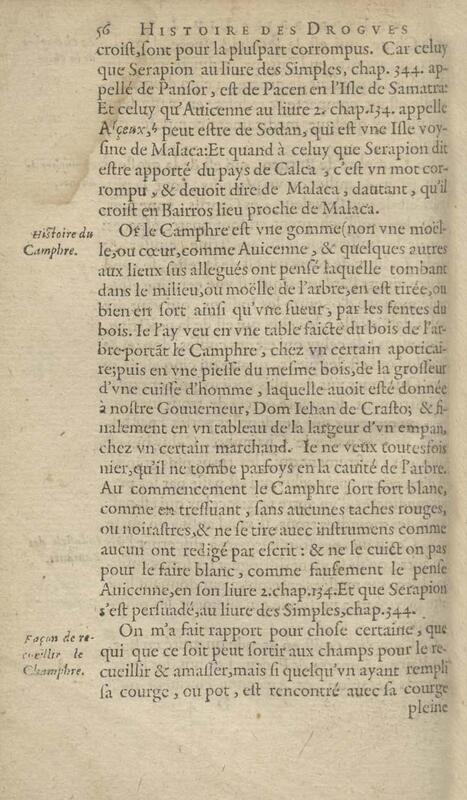 56 HISTOIRE DES DROGVES
croist, sont pour la pluspart corrompus. Car celuy
que Serapion au liure des Simples, chap. 344. ap-
pellé de Pansor, est de Pacen en l'Isle de Samatra:
Et celuy qu'Auicenne au liure 2. chap. 134. appelle
peut estre de Sodan, qui est vne Isle voy-
sine de Malaca: Et quand à celuy que Serapion dit
estre apporté du pays de Calca, c'est vn mot cor-
rompu, & deuoit dire de Malaca, dautant, qu'il
croist en Bairros lieu proche de Malaca.
Histoire du
Camphre.
Or le Camphre est vne gomme (non vne moël-
le, ou cœur, comme Auicenne, & quelques autres
aux lieux sus allegués ont pensé laquelle tombant
dans le milieu, ou moëlle de l'arbre, en est tirée, ou
bien en sort ainsi qu'vne sueur, par les fentes du
bois. Ie l'ay veu en vne table faicte du bois de l'ar-
bre portãt le Camphre, chez vn certain apoticai-
re; puis en vne piesse du mesme bois, de la grosseur
d'vne cuisse d'homme, laquelle auoit esté donnée
à nostre Gouuerneur, Dom Iehan de Crasto; & fi-
nalement en vn tableau de la largeur d'vn empan,
chez vn certain marchand. Ie ne veux toutesfois
nier, qu'il ne tombe parfoys en la cauité de l'arbre.
Au commencement le Camphre sort fort blanc,
comme en tressuant, sans aucunes taches rouges,
ou noirastres, & ne se tire auec instrumens comme
aucun ont redigé par escrit: & ne le cuict on pas
pour le faire blanc, comme fausement le pense
Auicenne, en son liure 2. chap. 134. Et que Serapion
s'est persuadé, au liure des Simples, chap. 344.
Façon de re-
cueillir le
Champhre.
On m'a fait rapport pour chose certaine, que
qui que ce soit peut sortir aux champs pour le re-
cueillir & amasser, mais si quelqu'vn ayant rempli
sa courge, ou pot, est rencontré auec sa courge
pleine